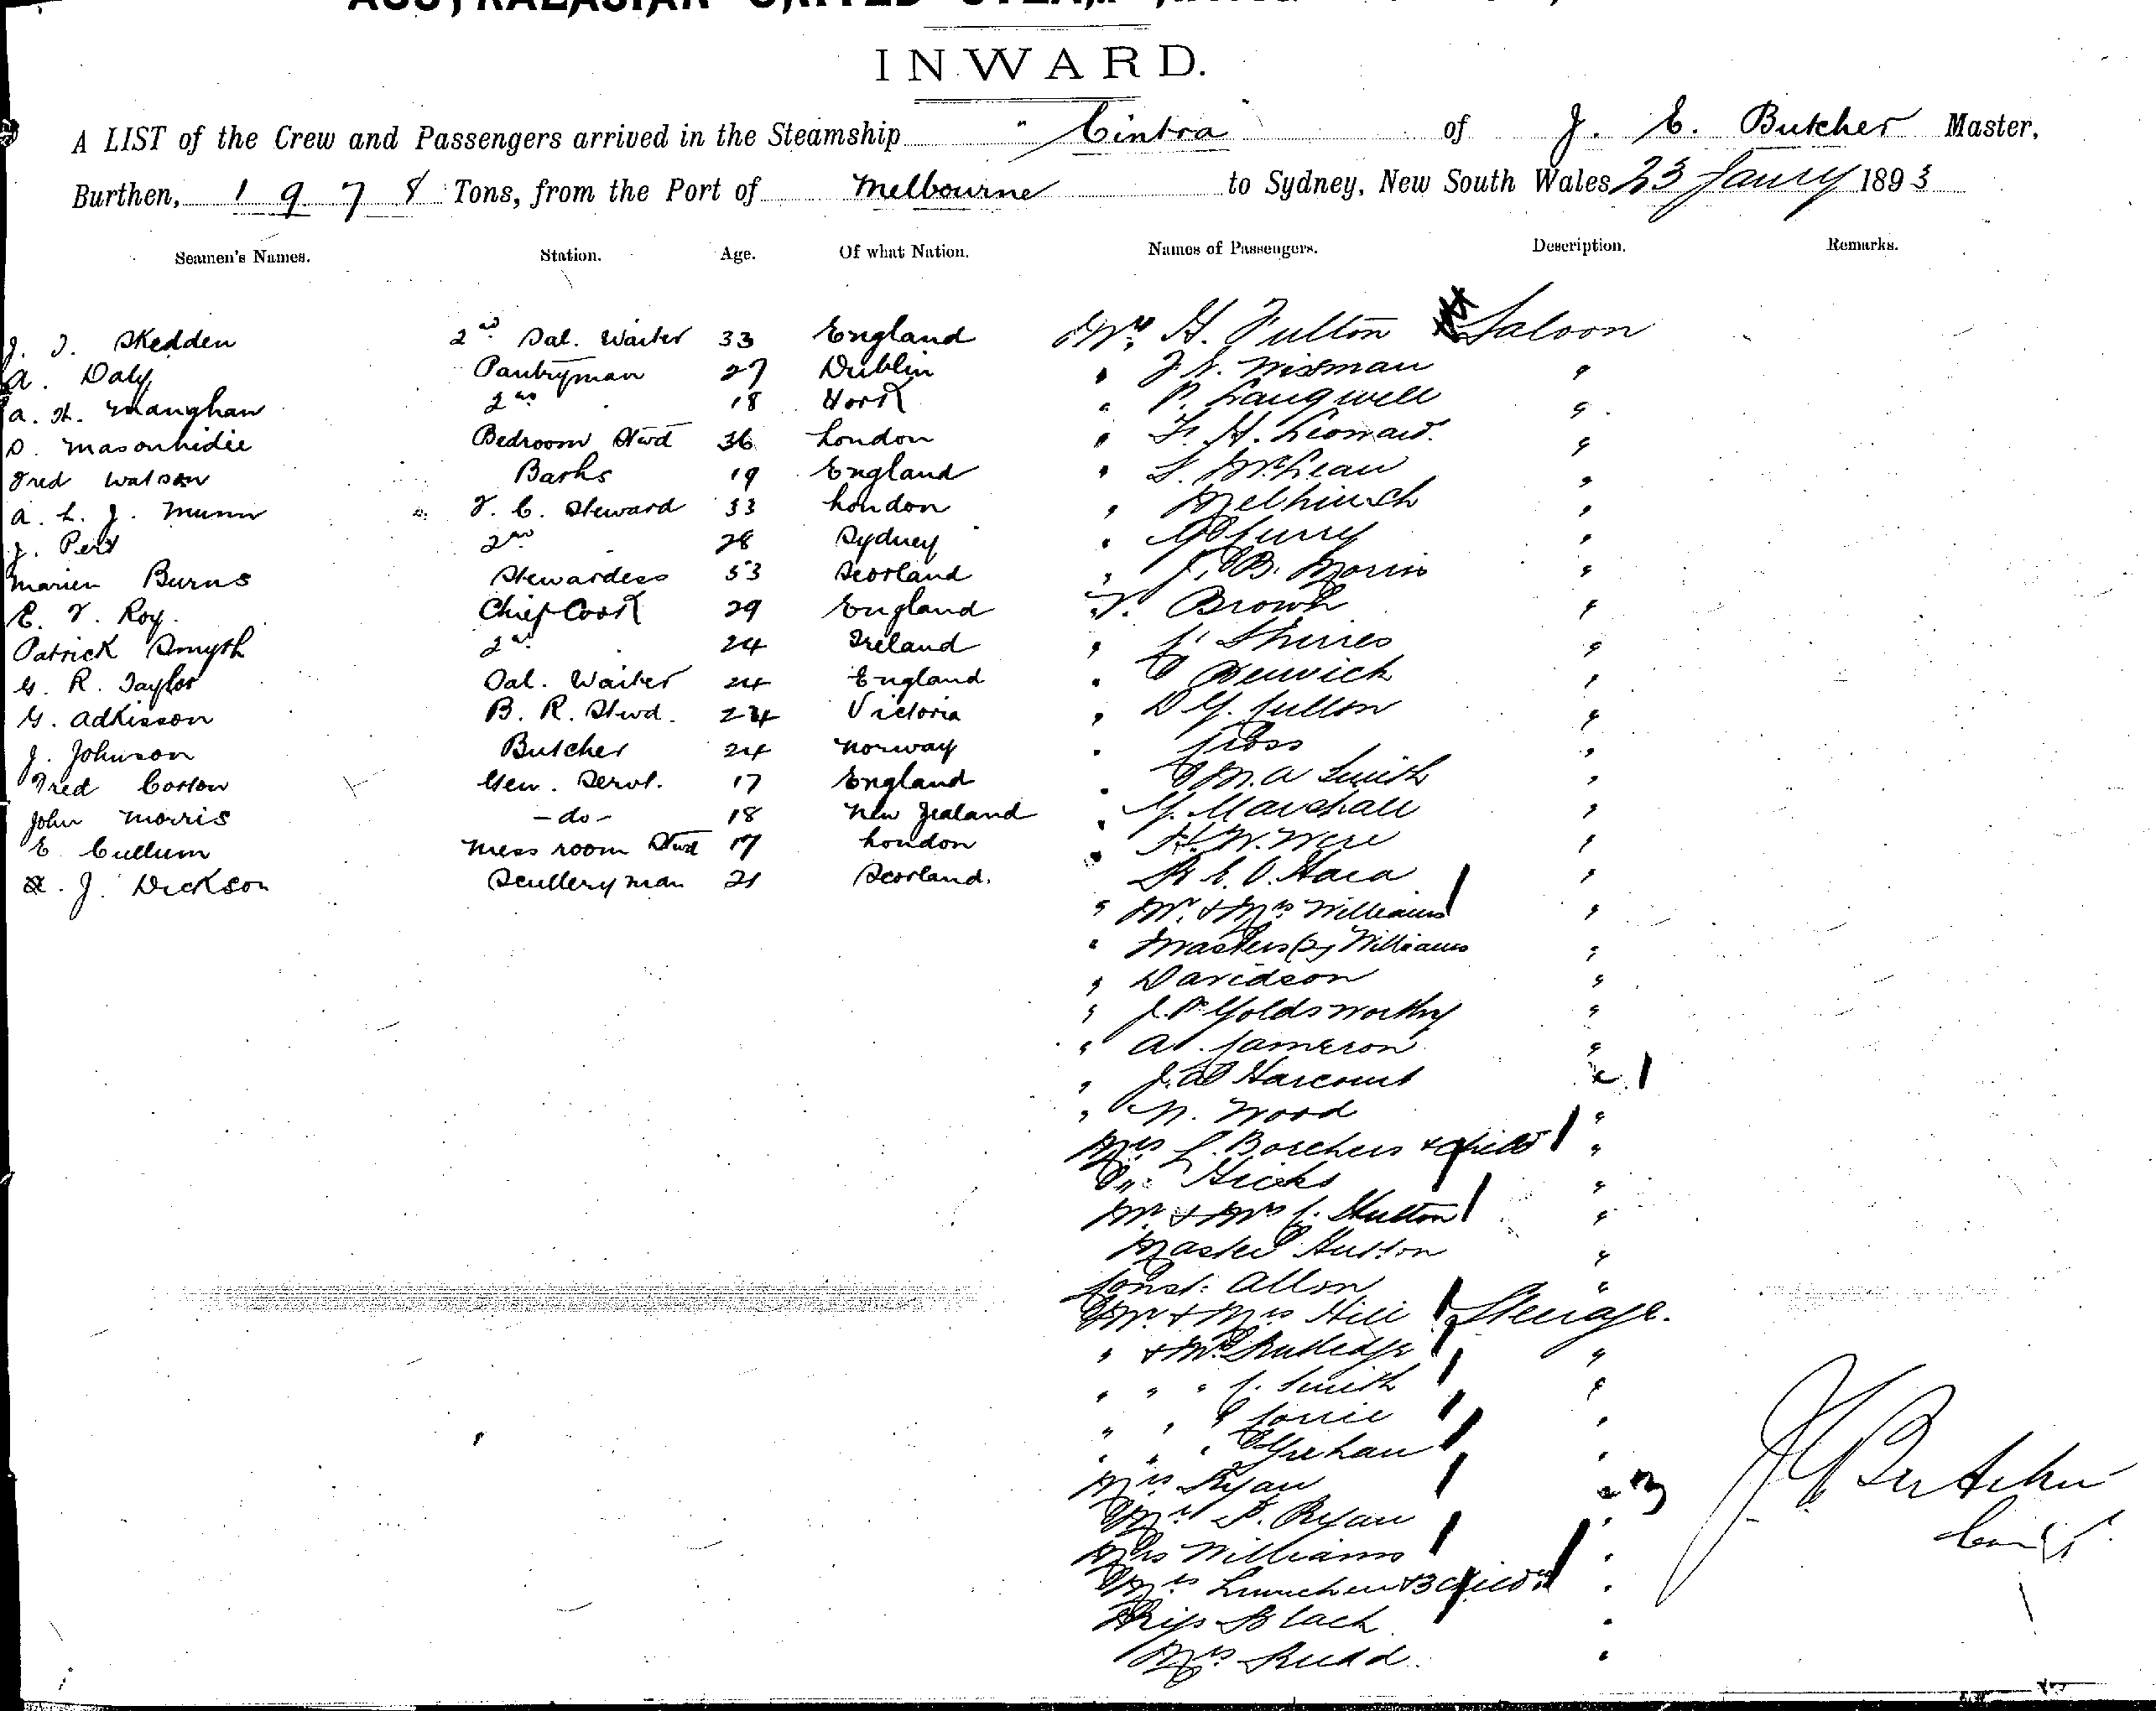 INWARD.
A LIST of the Crew and Passengers arrived in the Steamship "Cintra of J. E. Butcher Master,
Burthen, 1978 Tons, from the Port of Melbourne to Sydney, New South Wales 23 Jany 1893
Seamen's Names. Station. Age. Of what Nation. Names of Passengers. Description. Remarks.
J. J. Skedden 2nd Sal. Waiter 33 England Mr. H. Fulton Saloon
A. Daly Pantryman 27 Dublin " Wisman "
A. H. Maughan 2nd " 18 " P. Langwell "
D. Bedroom Stwd 36 London " F. H. Leonard "
Fred Watson Barks 19 England " McLean "
A. L. J. Munn F. C. Steward 33 London " Melhuish "
J. Pert 2nd " 28 Sydney " Curry "
Marien Burns Stewardess 53 Scotland " J. B. Morris "
E. F. Roy. Chief Cook 29 England " Brown "
Patrick Smyth 2nd " 24 Ireland " "
G. R. Taylor Sal. Waiter 24 England " "
G. Adkisson B. R. Stwd. 24 Victoria " "
J. Johnson Butcher 24 Norway " Cross "
Fred Coston Gen. Servt. 17 England " M. A Smith "
John Morris - do - 18 New Zealand " G. Marshall "
E Cullum Mess room Stwd 17 London " H. W. Were "
J. Dickson Scullery man 21 Scotland. O. Hara "
" Mr. & Mrs Williams "
" Masters (2) Williams "
" Davidson "
" J. P. Goldsworthy "
" A. Cameron "
" Harcourt "
" N. Wood "
Mrs Borchers & child "
" Hicks "
Mr. & Mrs C. Hutton "
Master Hutton "
Const. Allon "
Mr & Mrs Hill Steerage.
" & Mrs Rutledge "
" " " C. Smith "
" " " "
" " " Grehan "
Mrs Ryan " 3
P. Ryan "
Williams "
& 3 child "
Miss Black "
Mrs Rudd. "
J E Butcher